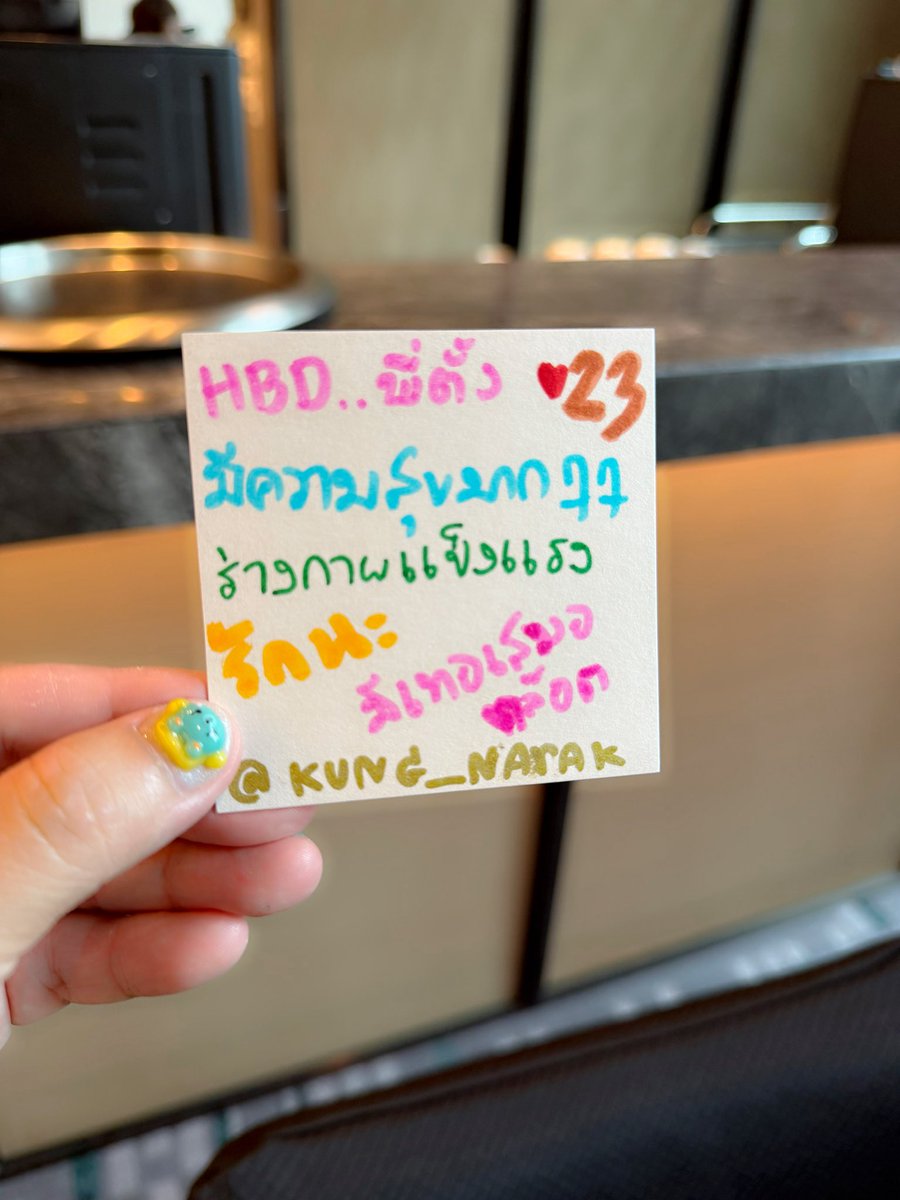 HBD..พี่ตั้ง ♥23
มีความสุขมากๆๆ
ร่างกายแข็งแรง
รักนะ
มีเทอเสมอ
♥ล็อต
@KUNG_NARAK